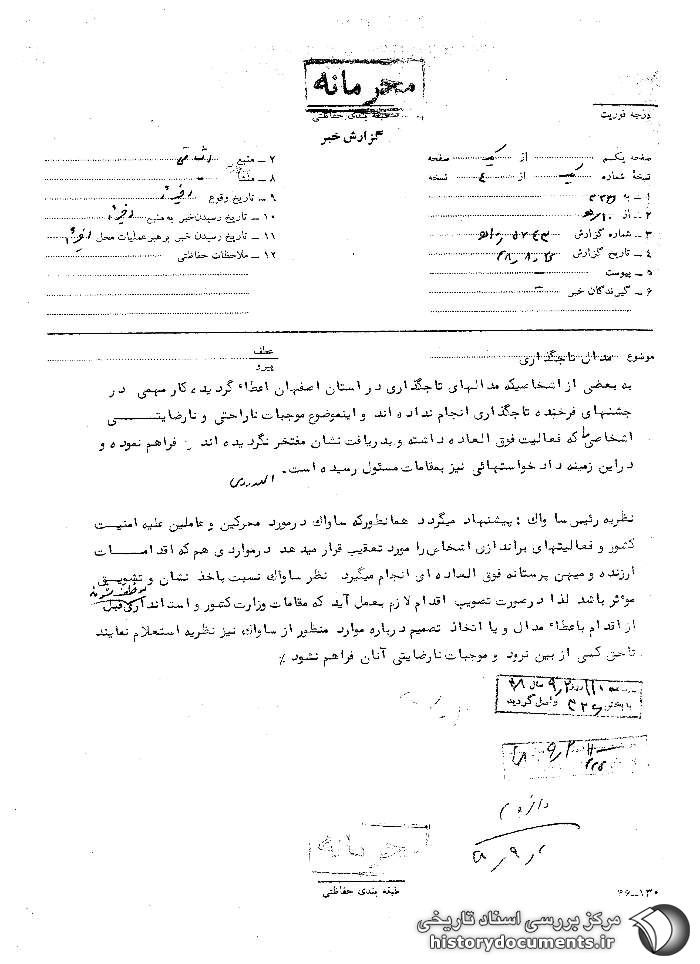 محرمانه
طبقه بندی حفاظتی
گزارش خبر
درجه فوریت
صفحه یکم از یک صفحه
نسخهٔ شماره یک از ٤ نسخه
۱ ـ به ۳۳۶
۲ ـ از ۱۰ﻫ
۳ ـ شماره گزارش
٤ ـ تاریخ گزارش
٥ ـ پیوست ـ
۶ ـ گیرندگان خبر ـ
۷ ـ منبع
۸ ـ منشأ
۹ ـ تاریخ وقوع اخیراً
۱۰ ـ تاریخ رسیدن خبر به منبع اخیراً
۱۱ ـ تاریخ رسیدن خبر برهبر عملیات محل اخیراً
۱۲ ـ ملاحظات حفاظتی
موضوع مدال تاجگذاری
عطف
پیرو
به بعضی از اشخاصیکه مدالهای تاجگذاری در استان اصفهان اعطاء گردیده کار مهمی در
جشنهای فرخنده تاجگذاری انجام نداده اند و اینموضوع موجبات ناراحتی و نارضایتی
اشخاصی که فعالیت فوق العاده داشته و بدریافت نشان مفتخر نگردیده اند را فراهم نموده و
در این زمینه داد خواستهائی نیز بمقامات مسئول رسیده است.
نظریه رئیس ساواك : پیشنهاد میگردد همانطورکه ساواك در مورد محرکین و عاملین علیه امنیت
کشور و فعالیتهای براندازی اشخاص را مورد تعقیب قرار میدهد در مواردی هم که اقدامات
ارزنده و میهن پرستانه فوق العاده ای انجام میگیرد نظر ساواك نسبت باخذ نشان و تشویق
موثر باشد لذا در صورت تصویب اقدام لازم بعمل آید که مقامات وزارت کشور و استانداری موظف شوند قبل
از اقدام باعطاء مدال و یا اتخاذ تصمیم درباره موارد منظور از ساواك نیز نظریه استعلام نمایند
تا حق کسی از بین نرود و موجبات نارضایتی آنان فراهم نشود ٪
واصل گردید
محرمانه
طبقه بندی حفاظتی
۱۳۰ـ۴۶
مرکز بررسی اسناد تاریخی
historydocuments.ir